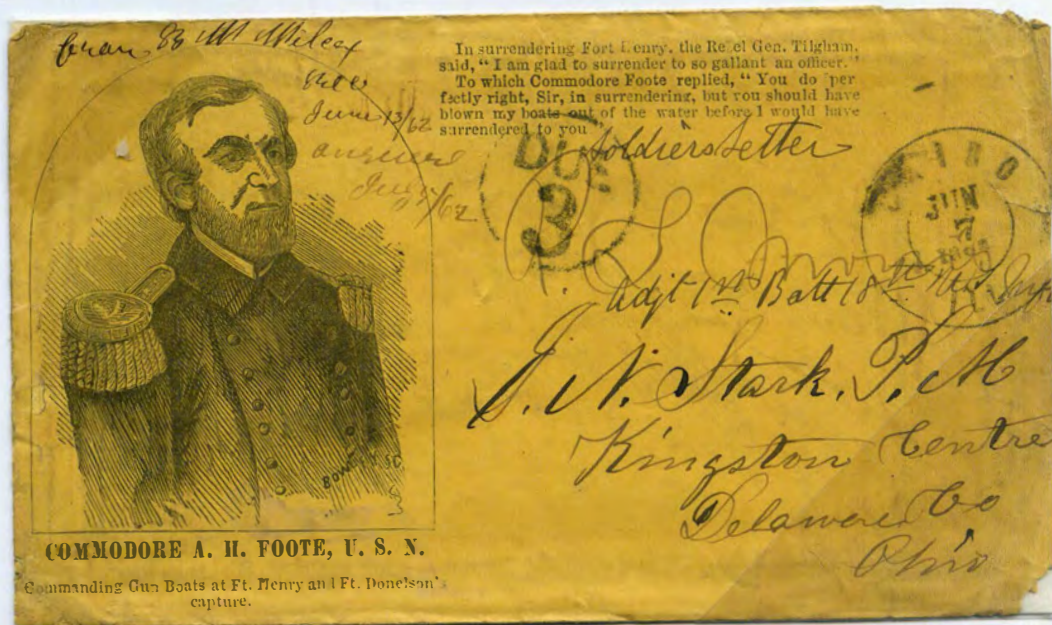 In surrendering Fort Henry, the Rebel Gen. Tilgham,
said, "I am glad to surrender to so gallant an officer."
To which Commodore Foote replied, "You do per
fectly right, Sir, in surrendering, but you should have
blown my boats out of the water before I would have
surrendered to you
B M Wilcox
June 13/62
/62
Soldiers Letter
DUE
3
CAIRO
JUN
7
Adjt 1st Batt 18th
J. N. Stark. P. M
Kingston Centre
Delaware Co
Ohio
COMMODORE A. H. FOOTE, U. S. N.
Commanding Gun Boats at Ft. Henry and Ft. Donelson's
capture.